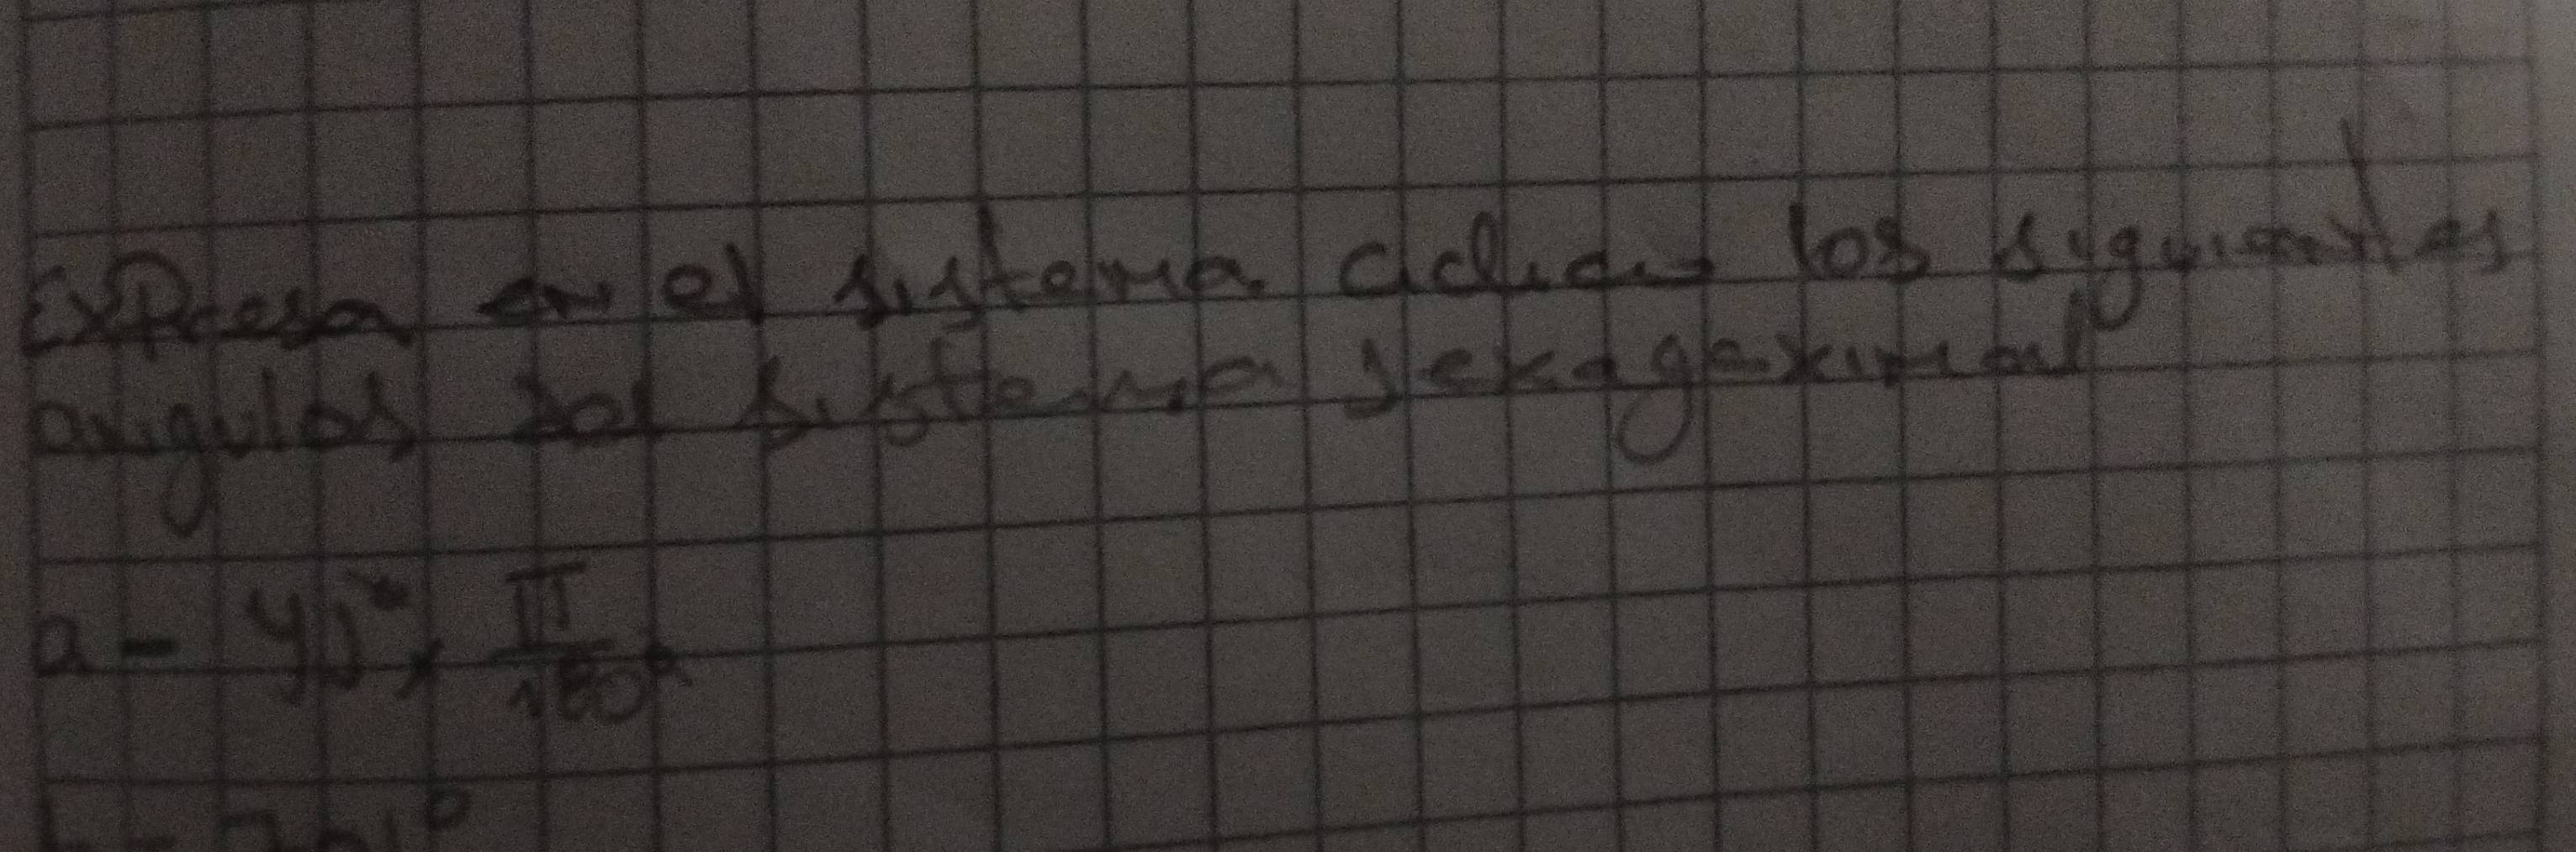 Expresa en el sistema ciclico los siguientes
angulos del sistema sexagesximal
a - 45° x π/180°